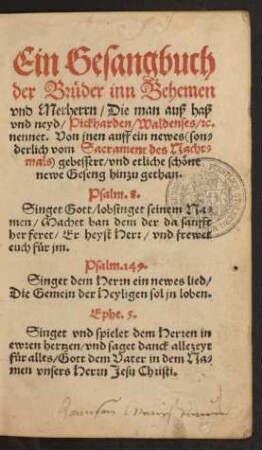 Ein Gesangbuch
der Brüder inn Behemen
vnd Merherrn / Die man auß haß
vnd neyd / Pickharden / Waldenses / ⁊c.
nennet. Von jnen auff ein newes (son-
derlich vom Sacrament des Nacht-
mals) gebessert / vnd etliche schöne
newe Geseng hinzu gethan.
Psalm. 8.
Singet Gott / lobsinget seinem Na-
men / Machet ban dem der da sanfft
her feret / Er heyst Herr / vnd frewet
euch für jm.
Psalm. 149.
Singet dem Herrn ein newes lied /
Die Gemein der Heyligen sol jn loben.
Ephe. 5.
Singet vnd spielet dem Herren in
ewren hertzen / vnd saget danck allezeyt
für alles / Gott dem Vater in dem Na-
men vnsers Herrn Jesu Christi.